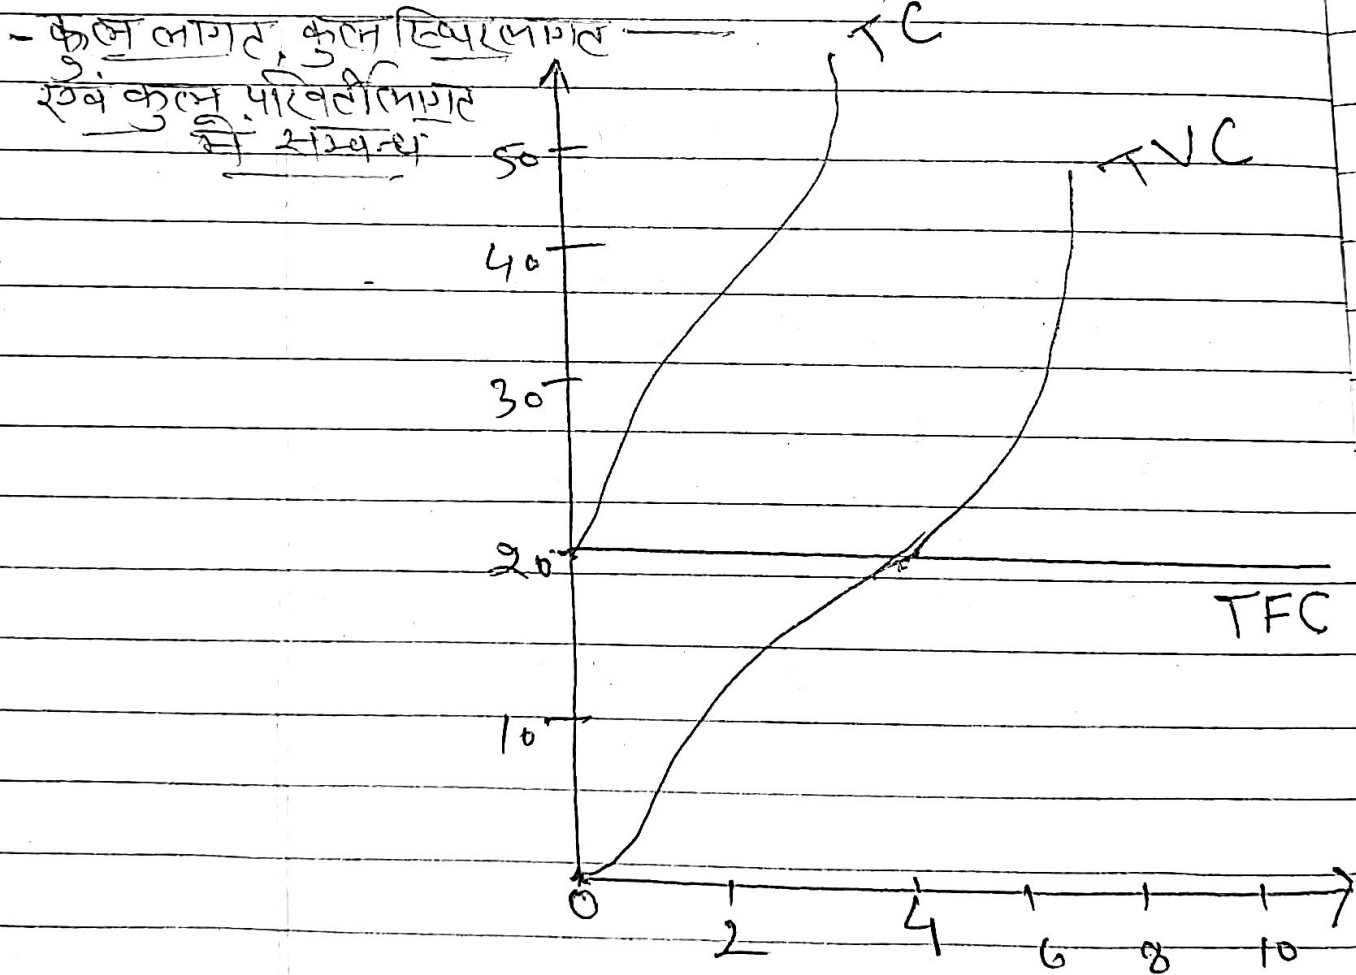 - कुल लागत, कुल स्थिर लागत
एवं कुल परिवर्ती लागत
में सम्बन्ध
TC
TVC
50
40
30
20
TFC
10
0
2
4
6
8
10